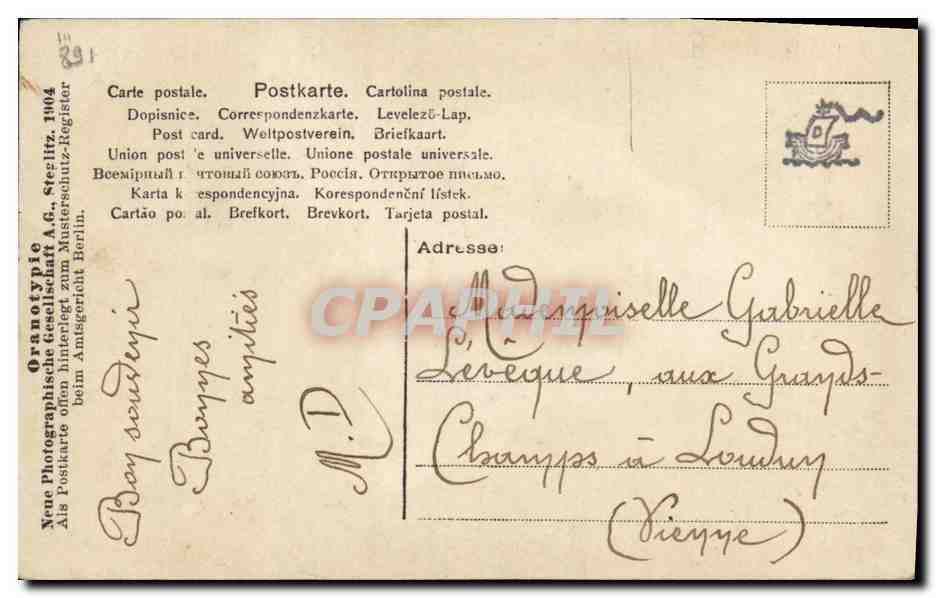 891
Carte postale. Postkarte. Cartolina postale.
Dopisnice. Correspondenzkarte. Levelező-Lap.
Post card. Weltpostverein. Briefkaart.
Union postale universelle. Unione postale universale.
Всемірный почтовый союзъ. Россія. Открытое письмо.
Karta korespondencyjna. Korespondenční lístek.
Cartão postal. Brefkort. Brevkort. Tarjeta postal.
Oranotypie
Neue Photographische Gesellschaft A.G., Steglitz. 1904
Als Postkarte offen hinterlegt zum Musterschutz-Register
beim Amtsgericht Berlin.
Bon souvenir
Bonnes
amitiés
M.D
D
Adresse:
Mademoiselle Gabrielle
Levêque, aux Grands-
Champs à Loudun
(Vienne)
CPAPHIL